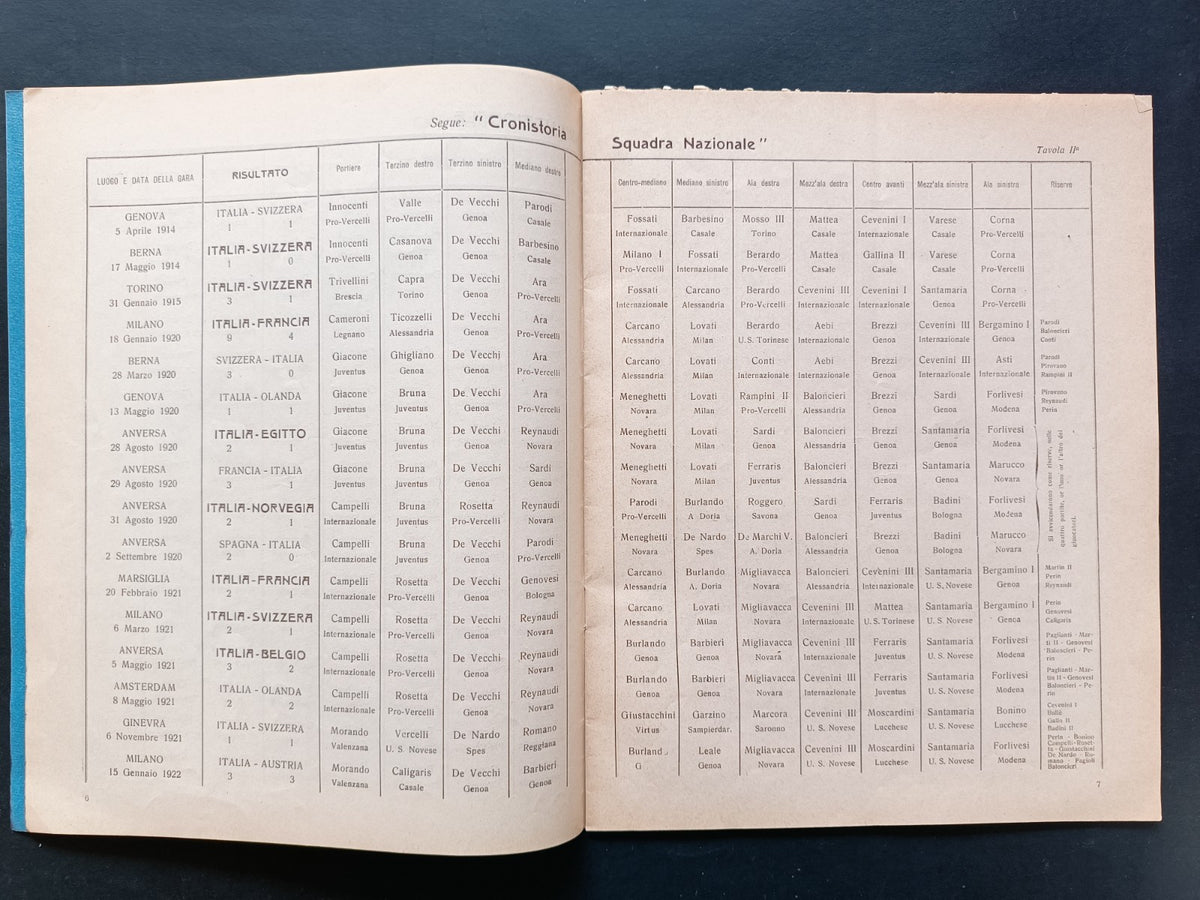 Segue: "Cronistoria
LUOGO E DATA DELLA GARA RISULTATO Portiere Terzino destro Terzino sinistro Mediano destro
GENOVA ITALIA - SVIZZERA Innocenti Valle De Vecchi Parodi
5 Aprile 1914 1 1 Pro-Vercelli Pro-Vercelli Genoa Casale
BERNA ITALIA-SVIZZERA Innocenti Casanova De Vecchi Barbesino
17 Maggio 1914 1 0 Pro-Vercelli Genoa Genoa Casale
TORINO ITALIA-SVIZZERA Trivellini Capra De Vecchi Ara
31 Gennaio 1915 3 1 Brescia Torino Genoa Pro-Vercelli
MILANO ITALIA-FRANCIA Cameroni Ticozzelli De Vecchi Ara
18 Gennaio 1920 9 4 Legnano Alessandria Genoa Pro-Vercelli
BERNA SVIZZERA - ITALIA Giacone Ghigliano De Vecchi Ara
28 Marzo 1920 3 0 Juventus Genoa Genoa Pro-Vercelli
GENOVA ITALIA - OLANDA Giacone Bruna De Vecchi Ara
13 Maggio 1920 1 1 Juventus Juventus Genoa Pro-Vercelli
ANVERSA ITALIA-EGITTO Giacone Bruna De Vecchi Reynaudi
28 Agosto 1920 2 1 Juventus Juventus Genoa Novara
ANVERSA FRANCIA - ITALIA Giacone Bruna De Vecchi Sardi
29 Agosto 1920 3 1 Juventus Juventus Genoa Genoa
ANVERSA ITALIA-NORVEGIA Campelli Bruna Rosetta Reynaudi
31 Agosto 1920 2 1 Internazionale Juventus Pro-Vercelli Novara
ANVERSA SPAGNA - ITALIA Campelli Bruna De Vecchi Parodi
2 Settembre 1920 2 0 Internazionale Juventus Genoa Pro-Vercelli
MARSIGLIA ITALIA-FRANCIA Campelli Rosetta De Vecchi Genovesi
20 Febbraio 1921 2 1 Internazionale Pro-Vercelli Genoa Bologna
MILANO ITALIA-SVIZZERA Campelli Rosetta De Vecchi Reynaudi
6 Marzo 1921 2 1 Internazionale Pro-Vercelli Genoa Novara
ANVERSA ITALIA-BELGIO Campelli Rosetta De Vecchi Reynaudi
5 Maggio 1921 3 2 Internazionale Pro-Vercelli Genoa Novara
AMSTERDAM ITALIA - OLANDA Campelli Rosetta De Vecchi Reynaudi
8 Maggio 1921 2 2 Internazionale Pro-Vercelli Genoa Novara
GINEVRA ITALIA - SVIZZERA Morando Vercelli De Nardo Romano
6 Novembre 1921 1 1 Valenzana U. S. Novese Spes Reggiana
MILANO ITALIA - AUSTRIA Morando Caligaris De Vecchi Barbieri
15 Gennaio 1922 3 3 Valenzana Casale Genoa Genoa
6
Squadra Nazionale"
Tavola IIª
Centro-mediano Mediano sinistro Ala destra Mezz'ala destra Centro avanti Mezz'ala sinistra Ala sinistra Riserve
Fossati Barbesino Mosso III Mattea Cevenini I Varese Corna
Internazionale Casale Torino Casale Internazionale Casale Pro-Vercelli
Milano I Fossati Berardo Mattea Gallina II Varese Corna
Pro-Vercelli Internazionale Pro-Vercelli Casale Casale Casale Pro-Vercelli
Fossati Carcano Berardo Cevenini III Cevenini I Santamaria Corna
Internazionale Alessandria Pro-Vercelli Internazionale Internazionale Genoa Pro-Vercelli
Carcano Lovati Berardo Aebi Brezzi Cevenini III Bergamino I
Alessandria Milan U. S. Torinese Internazionale Genoa Internazionale Genoa
Parodi
Baloncieri
Conti
Carcano Lovati Conti Aebi Brezzi Cevenini III Asti
Alessandria Milan Internazionale Internazionale Genoa Internazionale Internazionale
Parodi
Pirovano
Rampini II
Meneghetti Lovati Rampini II Baloncieri Brezzi Sardi Forlivesi
Novara Milan Pro-Vercelli Alessandria Genoa Genoa Modena
Pirovano
Reynaudi
Perin
Meneghetti Lovati Sardi Baloncieri Brezzi Santamaria Forlivesi
Novara Milan Genoa Alessandria Genoa Genoa Modena
Meneghetti Lovati Ferraris Baloncieri Brezzi Santamaria Marucco
Novara Milan Juventus Alessandria Genoa Genoa Novara
Si avvicendarono come riserve, nelle
quattro partite, or l'uno or l'altro dei
giuocatori.
Parodi Burlando Roggero Sardi Ferraris Badini Forlivesi
Pro-Vercelli A. Doria Savona Genoa Juventus Bologna Modena
Meneghetti De Nardo De Marchi V. Baloncieri Brezzi Badini Marucco
Novara Spes A. Doria Alessandria Genoa Bologna Novara
Carcano Burlando Migliavacca Baloncieri Cevenini III Santamaria Bergamino I
Alessandria A. Doria Novara Alessandria Internazionale U. S. Novese Genoa
Martin II
Perin
Reynaudi
Carcano Lovati Migliavacca Cevenini III Mattea Santamaria Bergamino I
Alessandria Milan Novara Internazionale U. S. Torinese U. S. Novese Genoa
Perin
Genovesi
Caligaris
Burlando Barbieri Migliavacca Cevenini III Ferraris Santamaria Forlivesi
Genoa Genoa Novara Internazionale Juventus U. S. Novese Modena
Paglianti - Mar-
ti II - Genovesi
Baloncieri - Pe-
rin
Burlando Barbieri Migliavacca Cevenini III Ferraris Santamaria Forlivesi
Genoa Genoa Novara Internazionale Juventus U. S. Novese Modena
Paglianti - Mar-
tin II - Genovesi
Baloncieri - Pe-
rin
Giustacchini Garzino Marcora Cevenini III Moscardini Santamaria Bonino
Virtus Sampierdar. Saronno U. S. Novese Lucchese U. S. Novese Lucchese
Cevenini I
Gallo II
Badini II
Burland Leale Migliavacca Cevenini III Moscardini Santamaria Forlivesi
G Genoa Novara U. S. Novese Lucchese U. S. Novese Modena
Perin - Bonino
Campelli-Roset-
ta - Giustacchini
De Nardo - Ro-
mano - Pagioli
Baloncieri
7